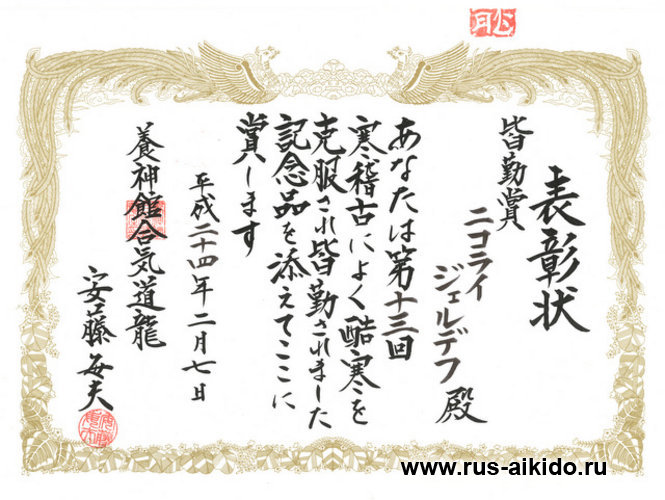 表彰状
皆勤賞
ニコライ
ジェルデフ 殿
あなたは第十三回
寒稽古によく酷寒を
克服され皆勤されました
記念品を添えてここに
賞します
平成二十四年二月七日
養神館合気道龍
安藤毎夫
www.rus-aikido.ru